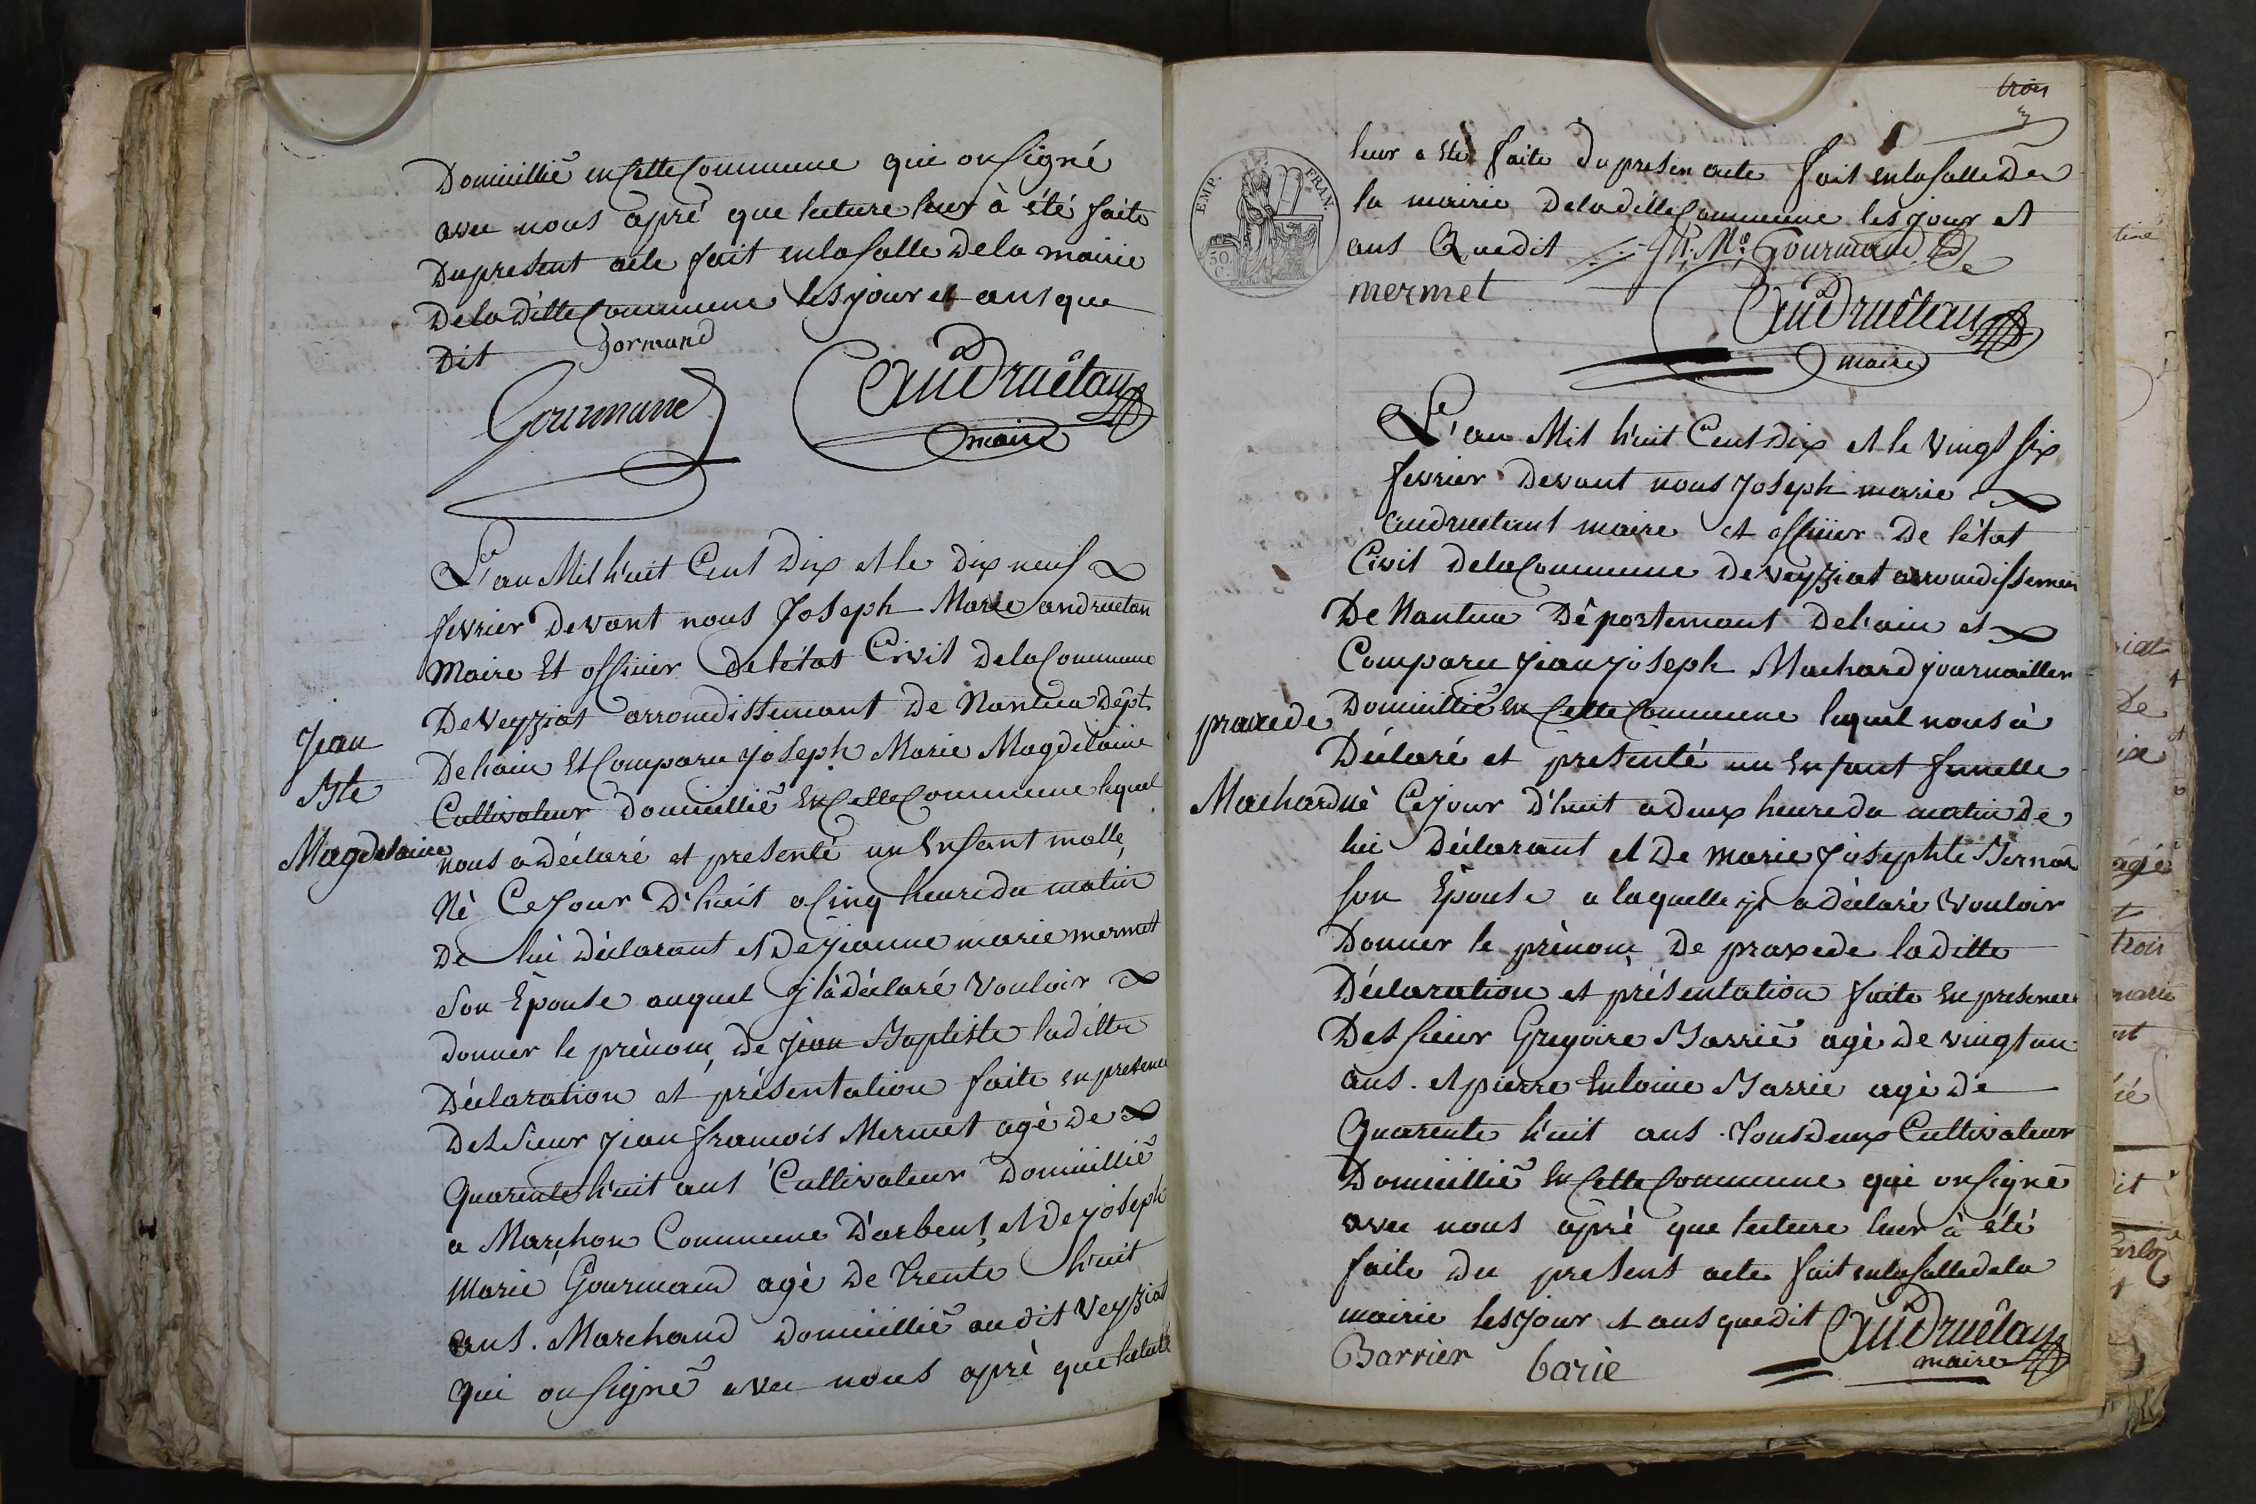 Domicillié en Cette Commune qui on Signé
avec nous apré que lecture leur à été faite
Du present acte fait en la Salle De la mairie
De la ditte Commune les jour et ans que
Dit
Gormand
Gourmand
Andruétan
maire
L'an Mil huit Cent Dix et le Dix neuf
fevrier Devant nous Joseph Marie andruetan
Maire Et officier De l'état Civil De la Commune
De Veyziat arrondissemant De Nantua Dépt.
De l'ain Et Comparu joseph Marie Magdelaine
Cultivateur Domicillié En Cette Commune lequel
nous a déclaré et presenté un Enfant malle
Né Ce Jour D'huit a Cinq heure du matin
De lui déclarant et De jeanne marie mermet
Son Epouse auquel jl à déclaré Vouloir
donner le prénom de jean Baptiste laditte
Déclaration et présentation faite en presence
Des Sieur jean françois Mermet agé De
Quarente huit ans Cultivateur Domicillié
a Marchon Commune D'arbent, et De joseph
Marie Gourmand agé De Trente huit
ans. Marchand Domicillié au dit Veyziat
Qui on Signé avec nous apré que
Jean
Bte
Magdelaine
trois
3
EMP. FRAN.
50 C.
leur a eté faite Du presen acte fait en la Salle De
la mairie De la ditte Commune les jour et
ans Que dit
Jh. Me. Gourmand
mermet
Andruétan
maire
L'an Mil huit Cent Dix et le Vingt Six
fevrier Devant nous Joseph marie
andruetant maire et officier De l'état
Civil De la Commune De Veyziat arrondissemen
De Nantua Département De l'ain et
Comparu jean joseph Machard journallier
Domicillié en Cette Commune lequel nous à
Déclaré et presenté un Enfant femelle
né Ce jour D'huit a deux heure du matin De
lui Déclarant et De marie josephte Bernar
Son Epouse a laquelle jl a déclaré Vouloir
Donner le prénom De praxede laditte
Déclaration et présentation faite En presence
Des Sieur Gregoire Barrié agé De vingt un
ans. et pierre Entoine Barrié agé De
Quarente huit ans. Tous deux Cultivateur
Domicillié En Cette Commune qui on Signé
avec nous apré que lecture leur à été
faite du present acte fait en la Salle de la
mairie les jour et ans que dit
Andruétan
maire
Barrier
barié
praxede
Machard